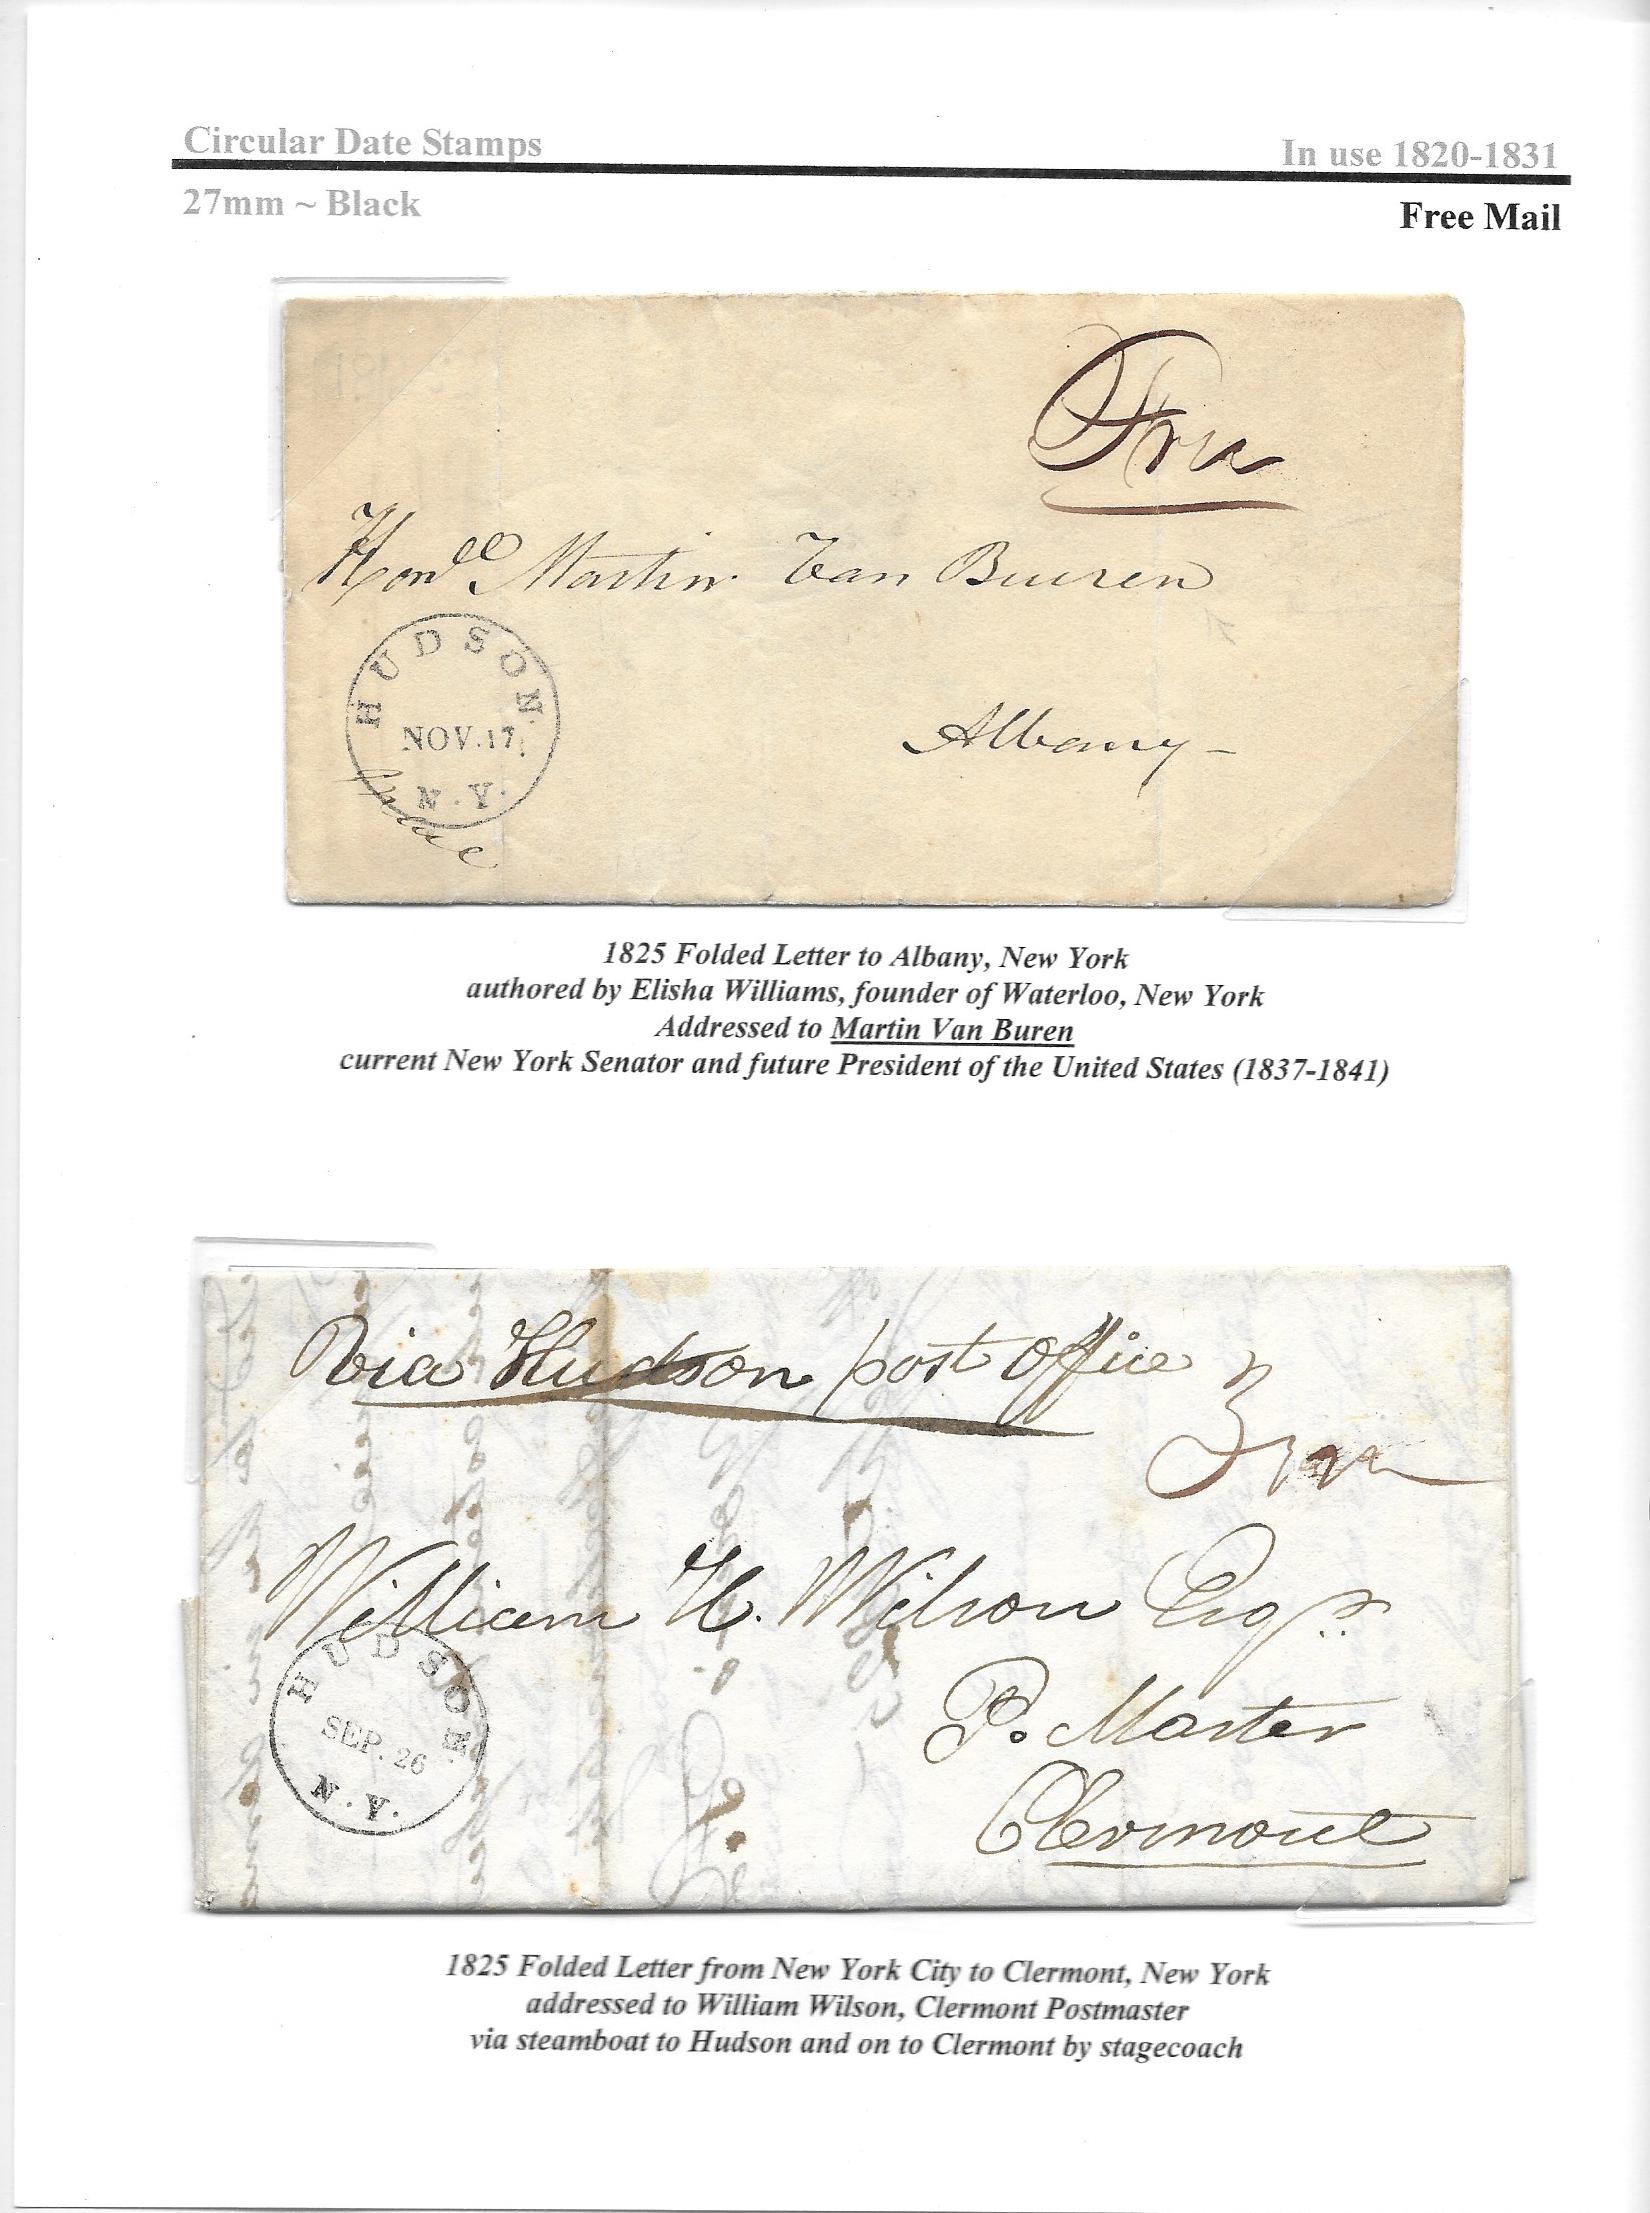 Circular Date Stamps
In use 1820-1831
27mm ~ Black
Free Mail
Free
Honl Martin Van Buren
HUDSON
NOV. 17
N.Y.
Albany
1825 Folded Letter to Albany, New York
authored by Elisha Williams, founder of Waterloo, New York
Addressed to Martin Van Buren
current New York Senator and future President of the United States (1837-1841)
Via Hudson post Office
Free
William H. Wilson Esqr.
P. Master
Clermont
HUDSON
SEP. 26
N.Y.
1825 Folded Letter from New York City to Clermont, New York
addressed to William Wilson, Clermont Postmaster
via steamboat to Hudson and on to Clermont by stagecoach